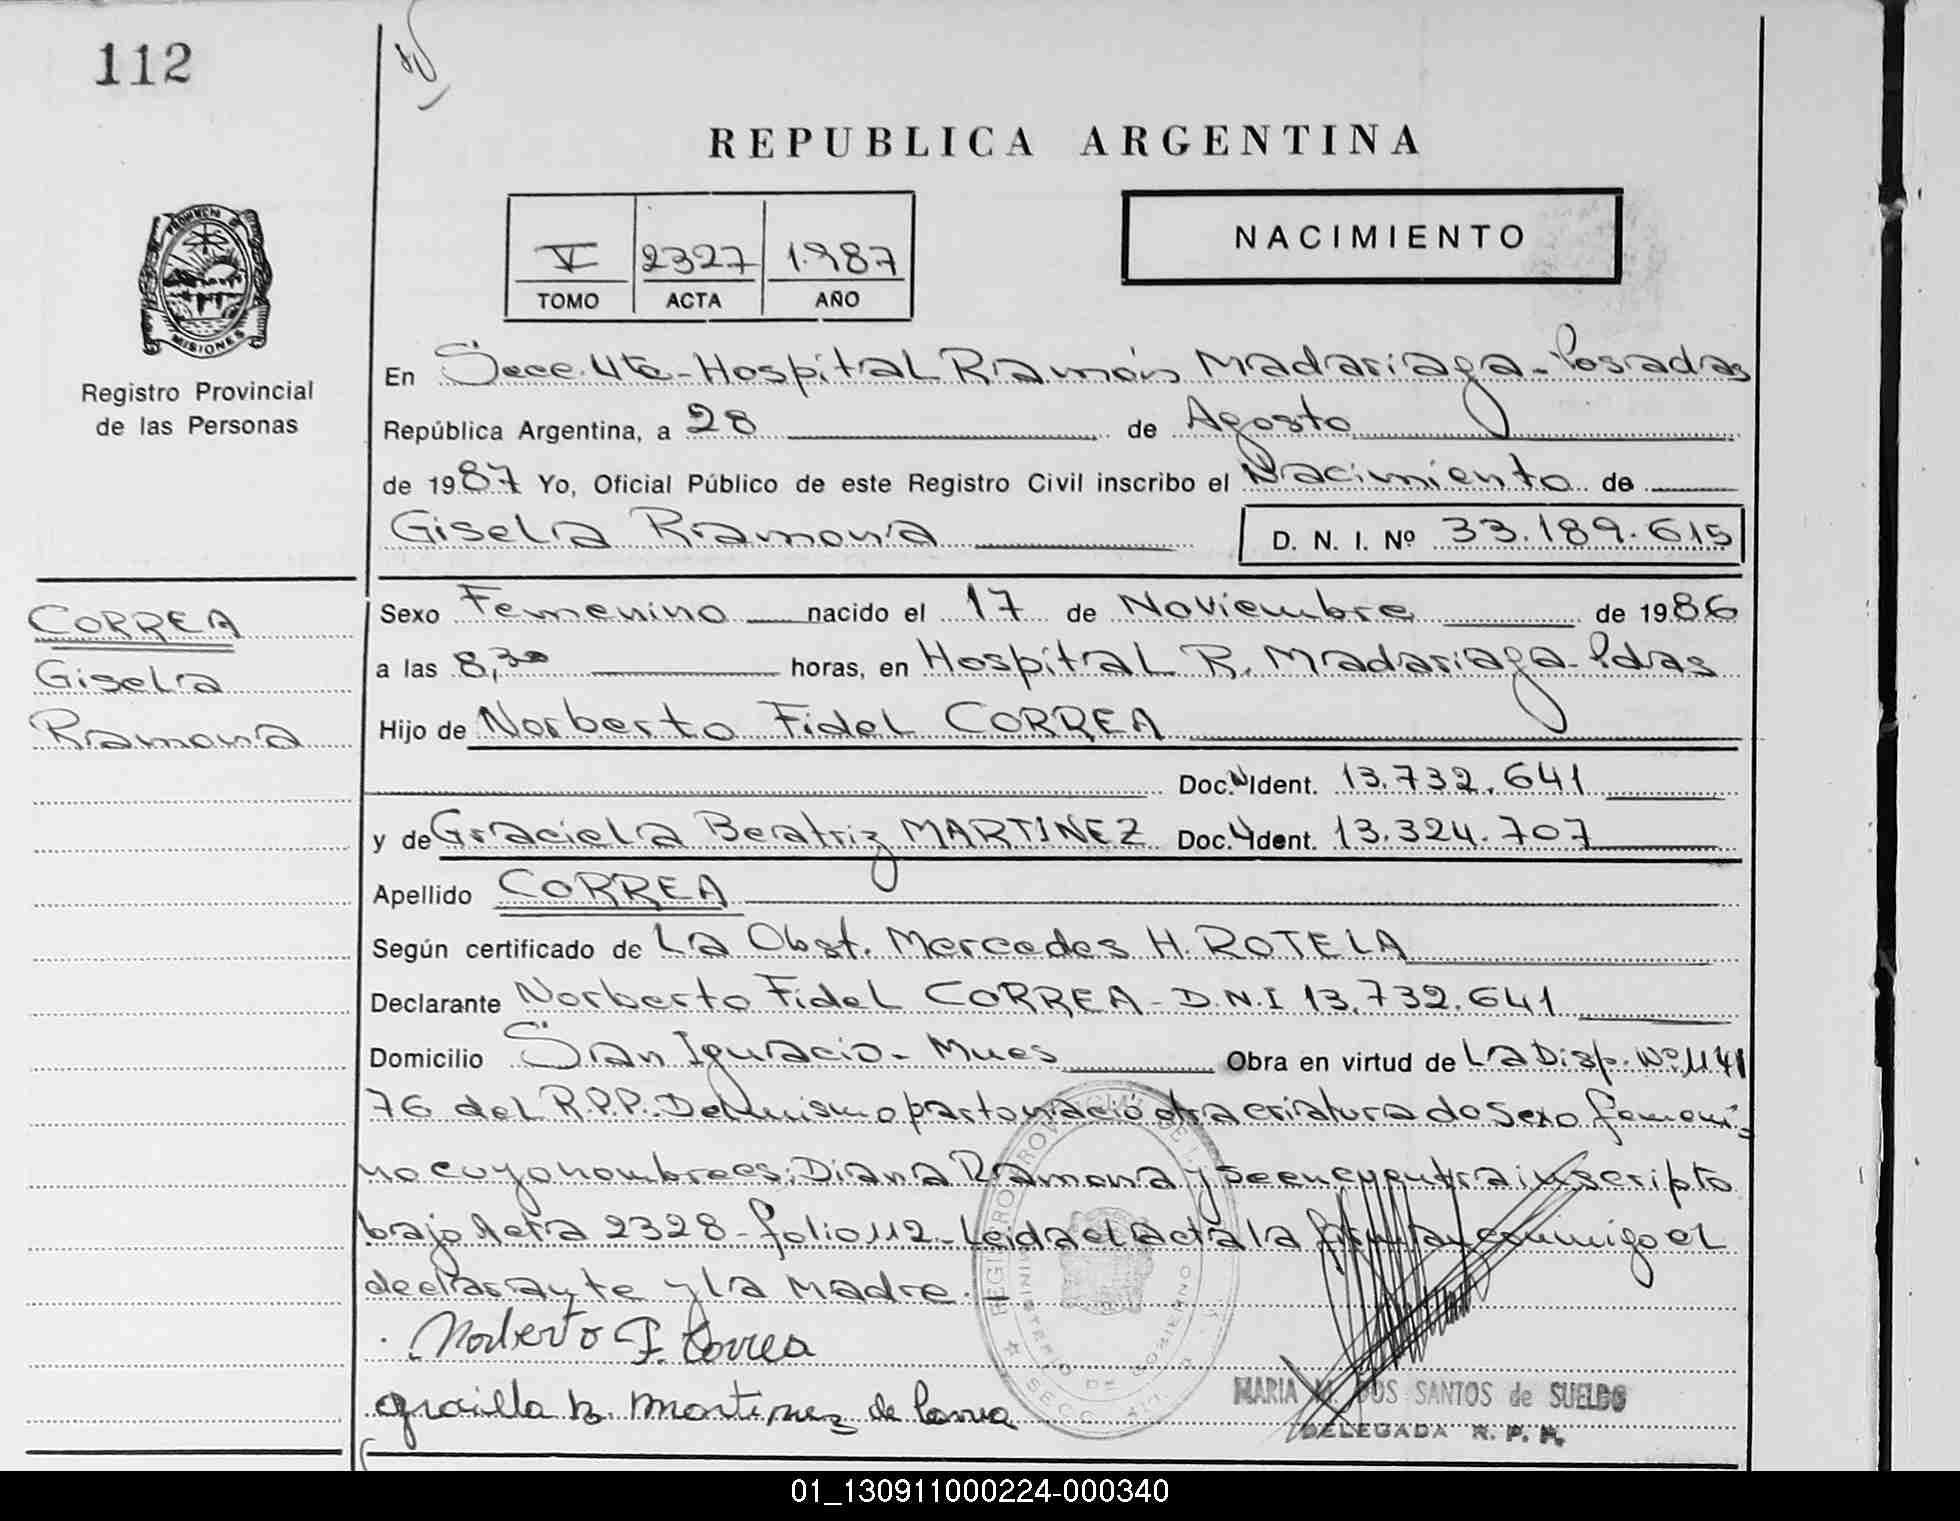 112
REPUBLICA ARGENTINA
V 2327 1.987
TOMO ACTA AÑO
NACIMIENTO
PROVINCIA
MISIONES
Registro Provincial
de las Personas
En Secc. 4ta - Hospital Ramón Madariaga - Posadas
República Argentina, a 28 de Agosto
de 1987 Yo, Oficial Público de este Registro Civil inscribo el Nacimiento de
Gisela Ramona D. N. I. Nº 33.189.615
CORREA
Gisela
Ramona
Sexo Femenino nacido el 17 de Noviembre de 1986
a las 8,30 horas, en Hospital R. Madariaga - Pdas
Hijo de Norberto Fidel CORREA
Doc. Ident. 13.732.641
y de Graciela Beatriz MARTINEZ Doc. Ident. 13.324.707
Apellido CORREA
Según certificado de La Obst. Mercedes H. ROTELA
Declarante Norberto Fidel CORREA - D.N.I 13.732.641
Domicilio San Ignacio - Mnes Obra en virtud de La Disp. Nº
76 del R.P.P. Del mismo parto nació otra criatura de sexo femeni-
no cuyo nombre es: Diana Ramona y se encuentra inscripto
bajo Acta 2328 - folio 112 - Leida el acta la firman conmigo el
declarante y la Madre. -
Norberto F. Correa
Graciela B. Martinez de Correa
MARIA M. DOS SANTOS de SUELDO
DELEGADA R. P. P.
01_130911000224-000340